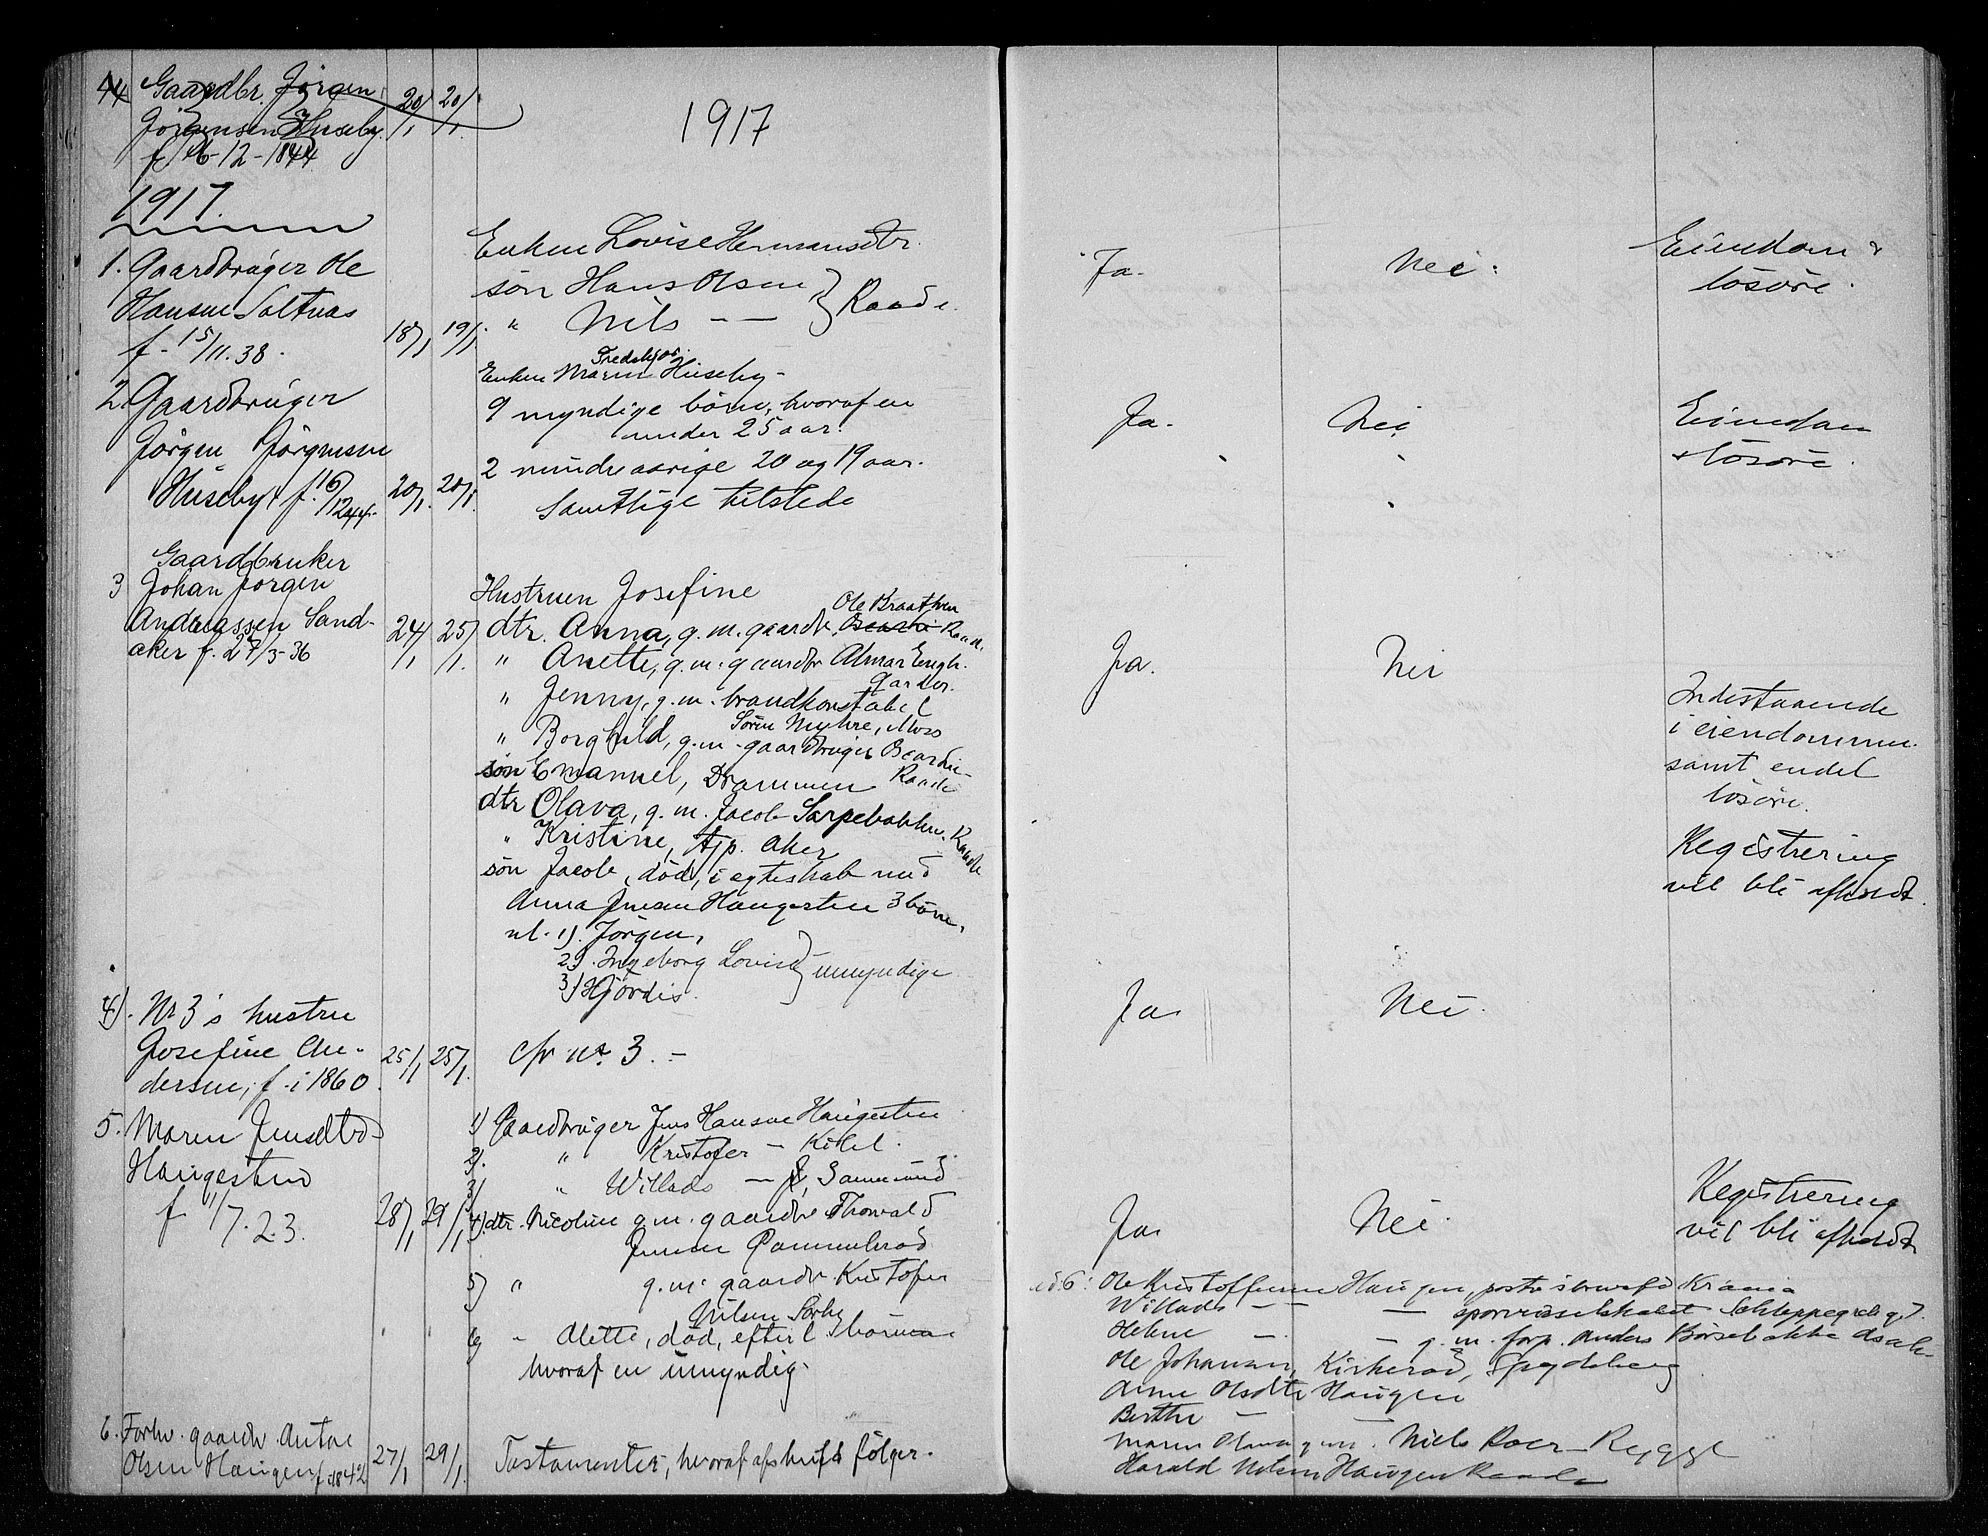 44 Gaardbr. Jörgen 20/1 20/1
Jörgensen Huseby
f 16-12-1844
1917
1917.
1. Gaardbrüger Ole
Hansen Saltnes
f. 15/11.38. 18/1 19/1
Enken Lovise Hermansdtr.
sön Hans Olsen } Raade.
" Nils — —
Ja. Nei. Eiendom &
lösöre.
2. Gaardbrüger
Jörgen Jörgensen
Huseby f. 16/12 44. 20/1. 20/1.
Enken Maren Huseby -
9 myndige börn, hvoraf en
under 25 aar.
2 mindreaarige 20 og 19 aar.
Samtlige tilstede
Ja. Nei Eiendom
& lösöre.
Gaardbruker
3 Johan Jörgen
Andreassen Sand-
aker f. 27/3-36 24/1 25/1.
Hustruen Josefine
Ole Braathen
dtr. Anna, g.m. gaardbr. Raade.
" Anette, g.m. gaardbr Almar Engh.
Garder.
" Jenny, g.m. brandkonstabel
Sören Myhre, Moss
" Borghild, g.m. gaardbrüger
Raade
sön Emanuel, Drammen
dtr Olava, g.m. Jacob Sarpebakken. Raade
" Kristine, Aker
sön Jacob, död, i egteskab med
Anna Jensen Haugesten 3 börn,
nl. 1). Jörgen,
2). Ingeborg Lovise } umyndige
3) Hjördis.
Ja. Nei
Indestaaende
i eiendommen
samt endel
lösöre.
Registrering
vil bli afholdt.
4). Nr 3's hustru
Josefine An-
dersen, f. i 1860. 25/1 25/1.
cfr nr. 3. -
Ja. Nei.
5. Maren Jensdtr
Haugesten
f 11/7.23. 28/1 29/1
1) Gaardbrüger Jens Hansen Haugesten
2). " Kristofer —
3) " Willads —
4). dtr. Nicoline g.m. gaardbr Thorvald
Jensen
5) " g.m. gaardbr. Kristofer
Nilsen Sörby
6) " Alette, död, efterl börn
hvoraf en umyndig.
Ja. Nei. Registrering
vil bli afholdt
6. Forhv. gaardbr. Anton
Olsen Haugen f. 1842 27/1 29/1.
Testamenter, hvoraf afskrift fölger.
ad. 6: Ole Kristoffersen Haugen, Kr.ania
Willads — — sporveisselskabet Schleppegrels gd.
Helene — — g.m. forp. Anders Börsebakke
Ole Johansen, Kirkerud, Spydeberg
Anne Olsdtr Haugen
Berthe — —
Maren Olava g.m. Niels Roer Rygge
Harald Nilsen Haugen Raade